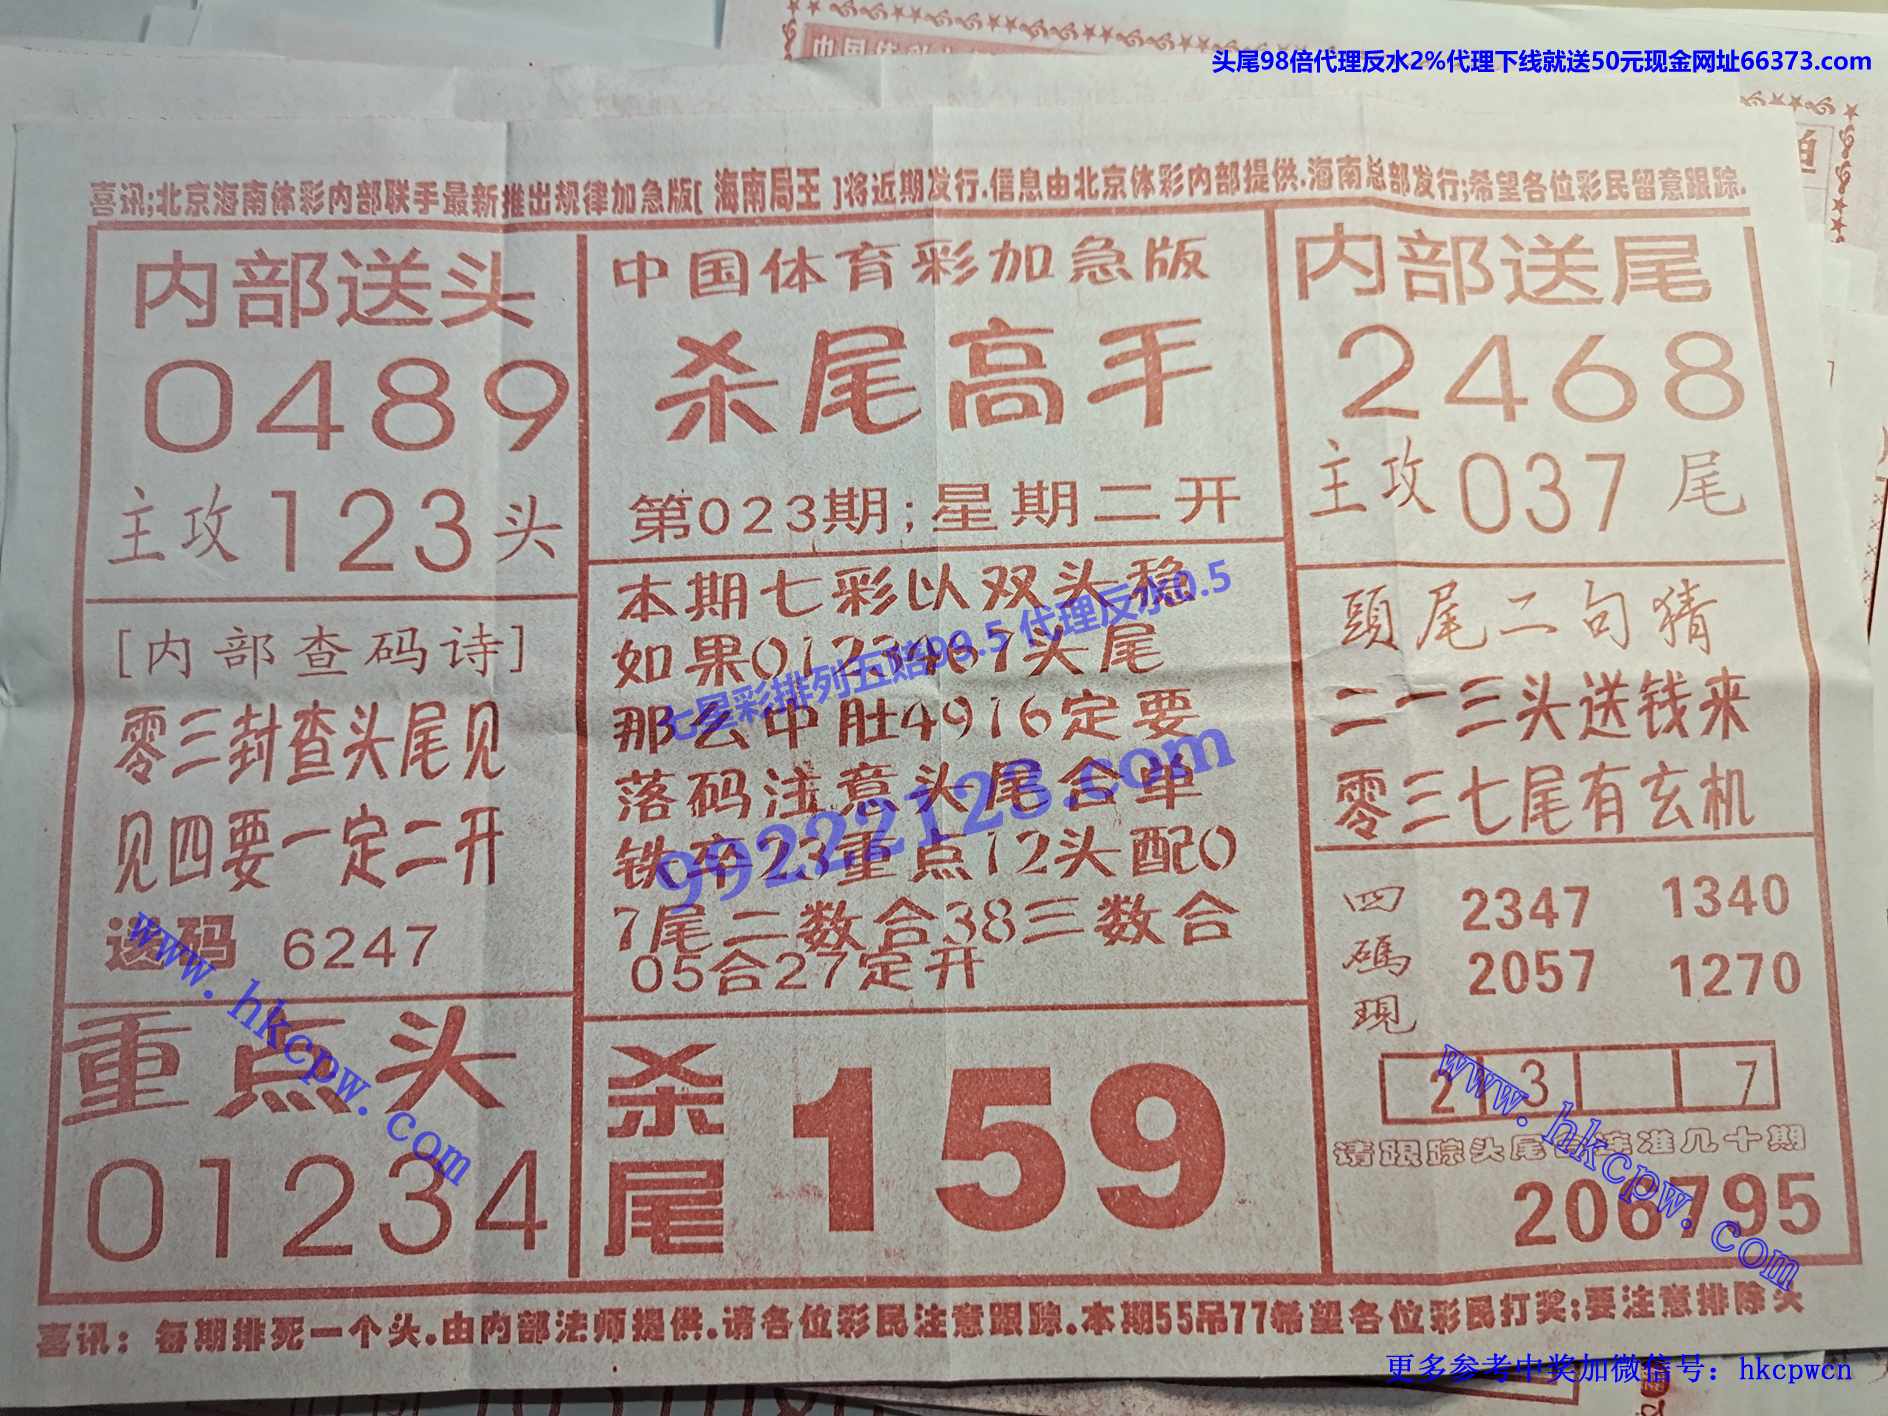 头尾98倍代理反水2%代理下线就送50元现金网址66373.com
喜讯;北京海南体彩内部联手最新推出规律加急版[ 海南局王 ]将近期发行.信息由北京体彩内部提供.海南总部发行;希望各位彩民留意跟踪.
内部送头
0489
主攻123头
[内部查码诗]
零三封查头尾见
见四要一定二开
送码 6247
重点头
01234
中国体育彩加急版
杀尾高手
第023期;星期二开
本期七彩以双头稳
如果0123467头尾
那么中肚4916定要
落码注意头尾合单
铁卒23重点12头配0
7尾二数合38三数合
05合27定开
杀尾
159
内部送尾
2468
主攻037尾
頭尾二句猜
二一三头送钱来
零三七尾有玄机
四碼現
2347 1340
2057 1270
2 3 7
请跟踪头尾 连准几十期
206795
喜讯：每期排死一个头.由内部法师提供.请各位彩民注意跟踪.本期55吊77希望各位彩民打奖;要注意排除头
七星彩排列五赔99.5 代理反水0.5
99222128.com
www.hkcpw.com
www.hkcpw.com
更多参考中奖加微信号：hkcpwcn